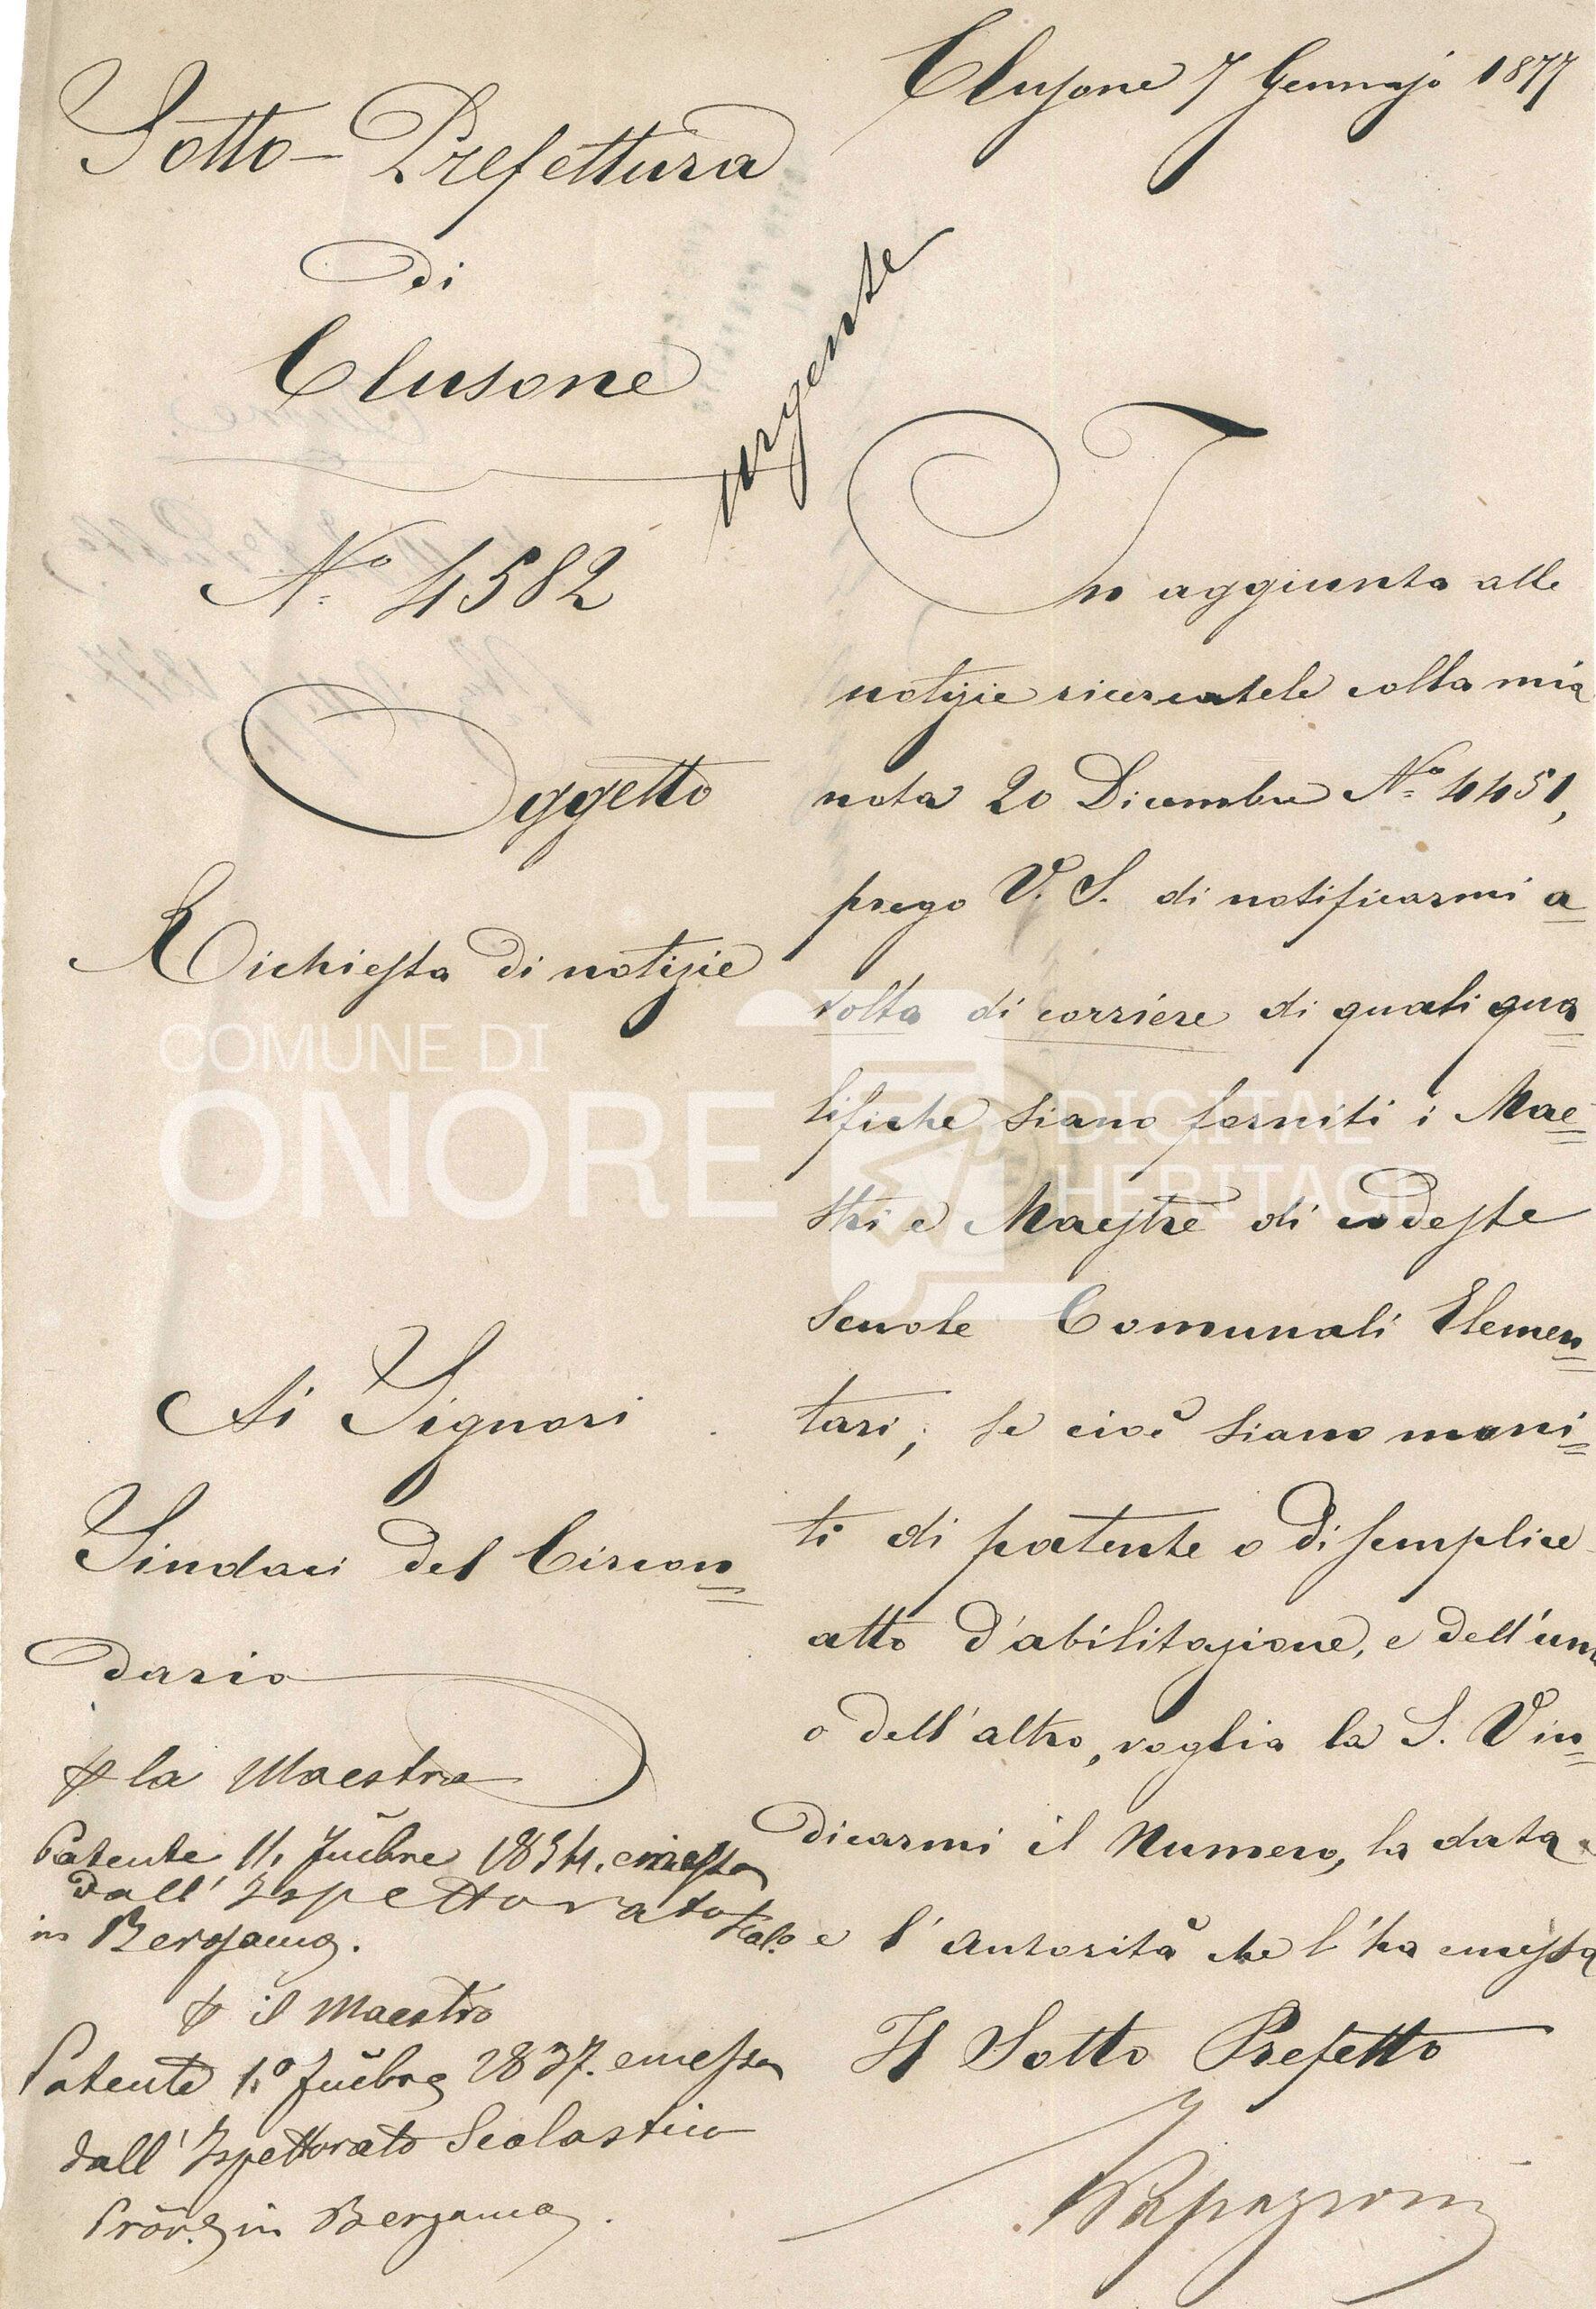 Clusone 7 Gennajo 1877
Sotto-Prefettura
di
Clusone
urgente
N.º 4582
Oggetto
Richiesta di notizie
Ai Signori
Sindaci del Circon=
dario
In aggiunta alle
notizie ricercatele colla mia
nota 20 Dicembre N.º 4451,
prego V. S. di notificarmi a
volta di corriere di quali qua=
lifiche siano forniti i Mae=
stri e Maestre di codeste
Scuole Comunali Elemen=
tari; se cioè siano muni=
ti di patente o di semplice
atto d'abilitazione, e dell'uno
o dell'altro, voglia la S. V. in=
dicarmi il Numero, la data
e l'Autorità che l'ha emessa
Il Sotto Prefetto
la Maestra
Patente 11. 1834. emessa
dall'Ispettorato Scol.
in Bergamo.
il Maestro
Patente 1.º 1837. emessa
dall'Ispettorato Scolastico
Prov. in Bergamo.
COMUNE DI
ONORE
DIGITAL
HERITAGE